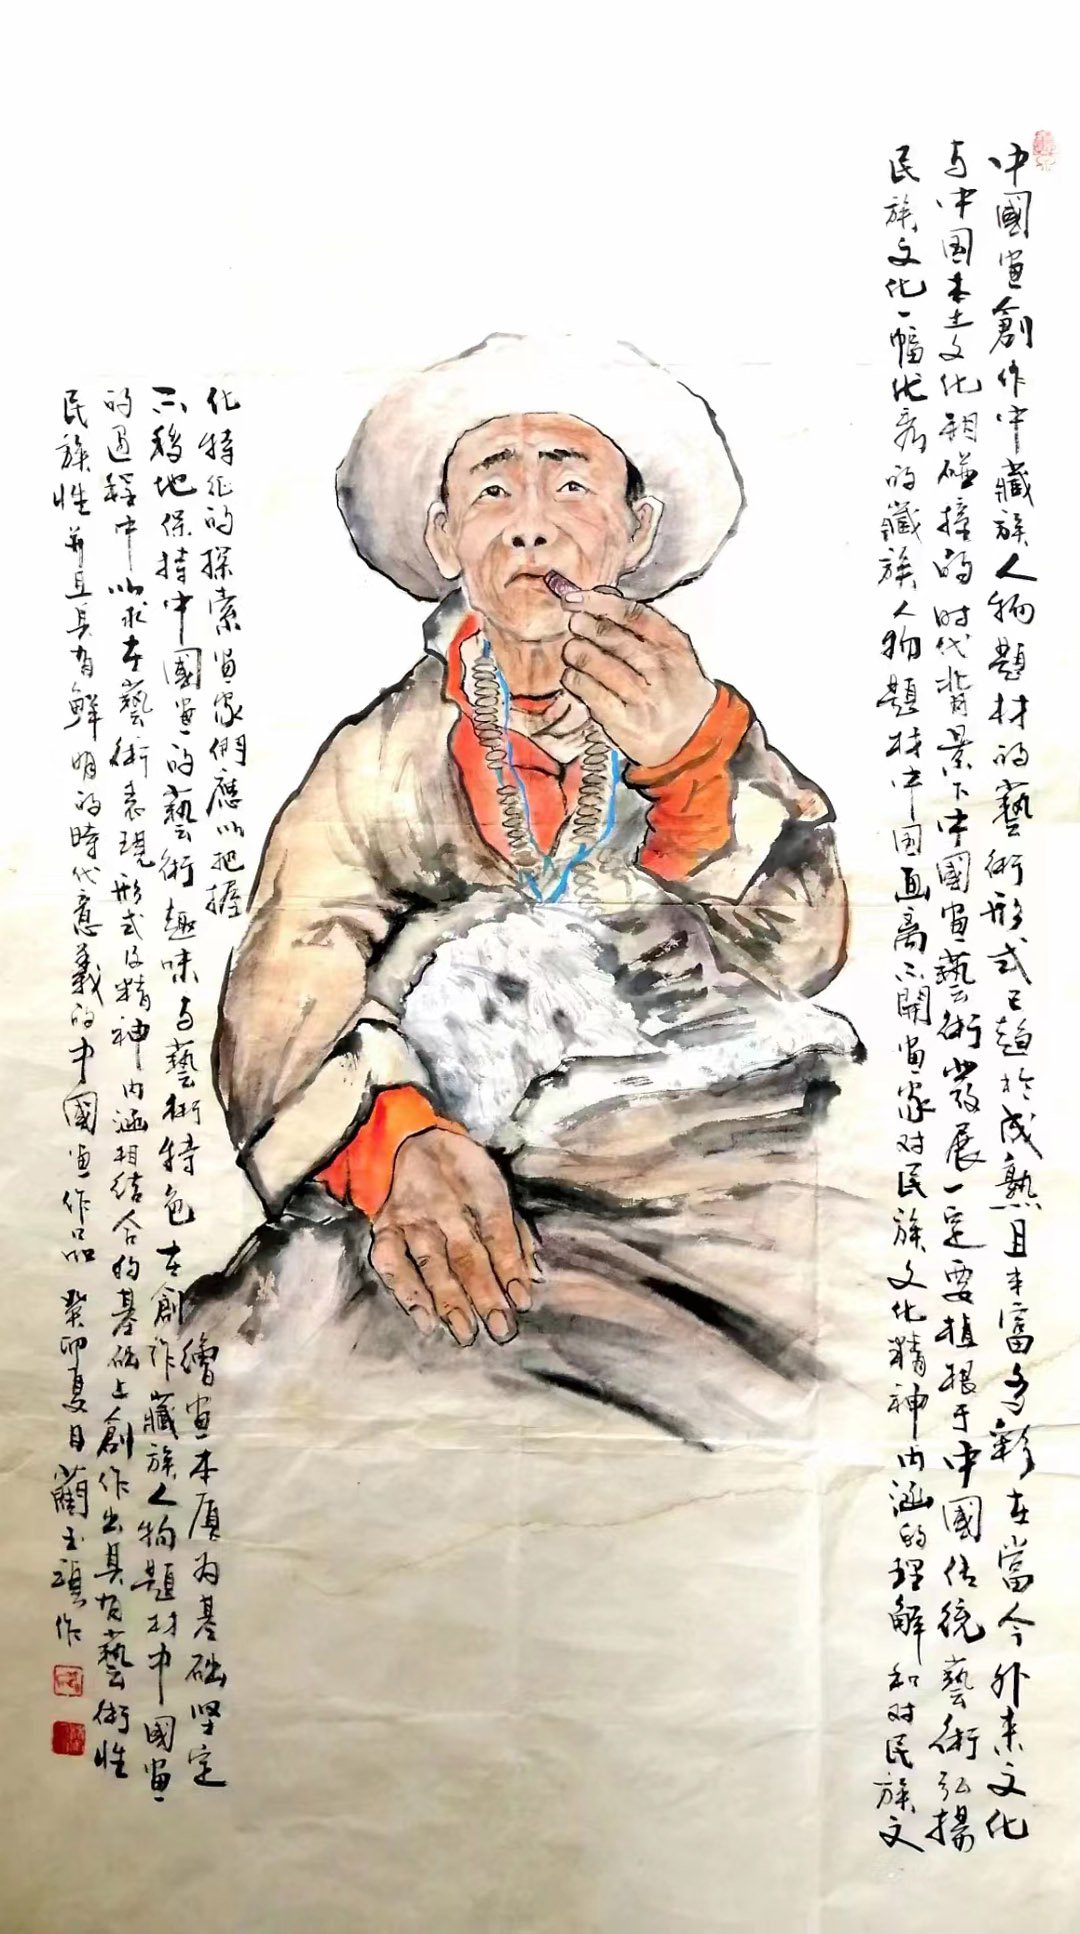 中國畫創作中藏族人物題材的藝術形式已趋於成熟且丰富多彩在當今外来文化
与中国本土文化相碰撞的时代背景下中國畫藝術发展一定要植根于中國传统藝術弘揚
民族文化一幅优秀的藏族人物題材中国画离不開畫家对民族文化精神内涵的理解和对民族文
化特征的探索畫家們應以把握
繪畫本质为基础坚定
不移地保持中國畫的藝術趣味与藝術特色在創作藏族人物題材中國畫
的过程中以求在藝術表現形式及精神内涵相结合的基础上創作出具有藝術性
民族性并且具有鮮明的時代意義的中國畫作品 癸卯夏月藺玉

作